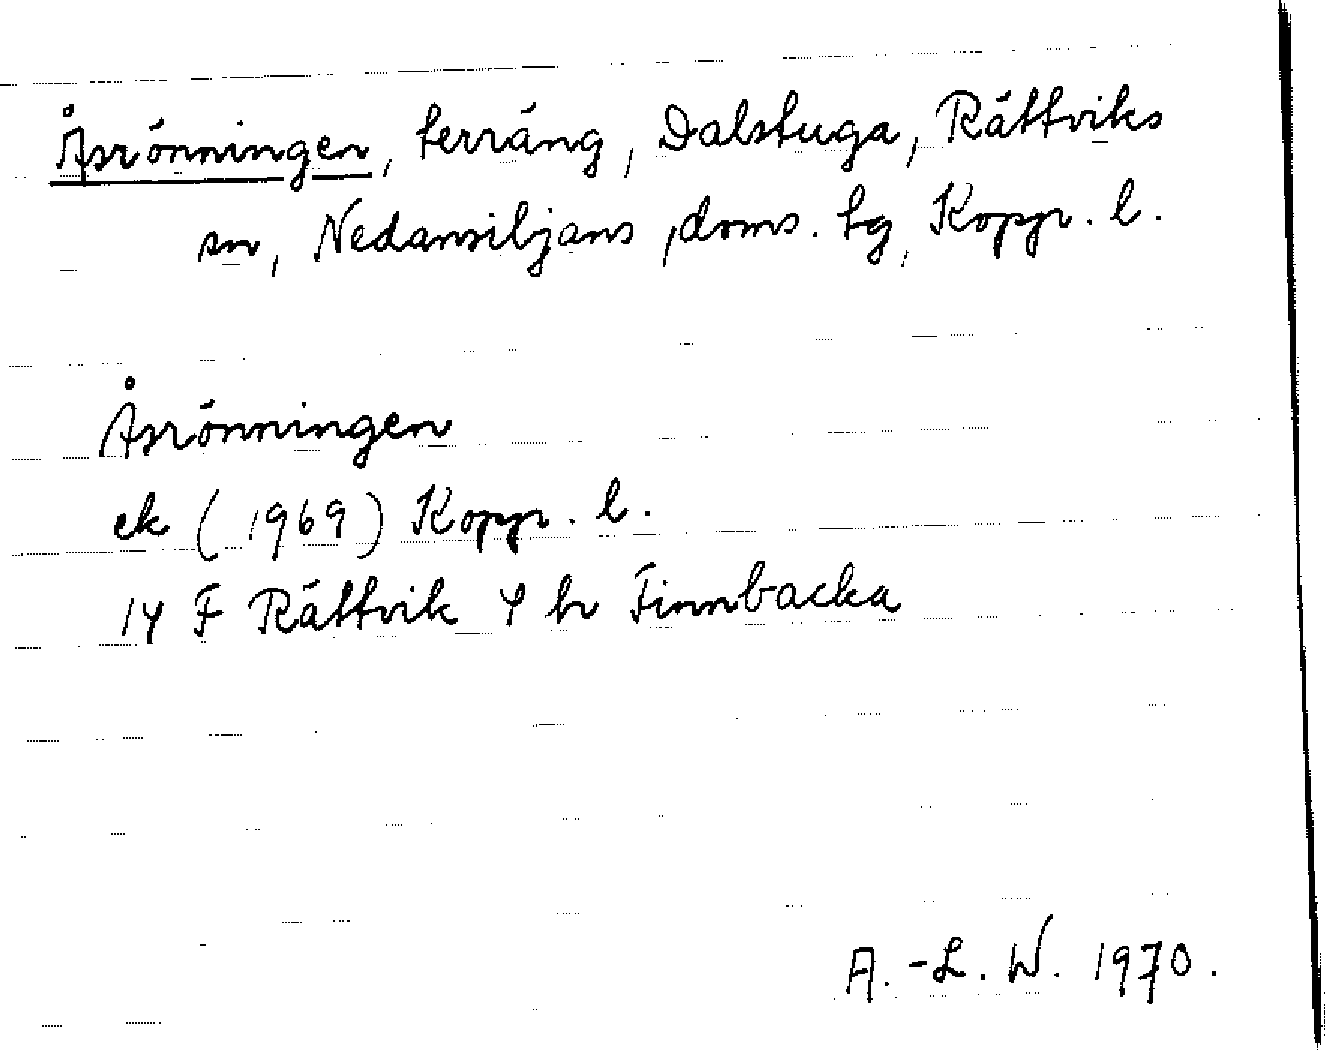 Åsrönningen, terräng, Dalstuga, Rättviks
sn, Nedansiljans doms. tg, Kopp. l.
Åsrönningen
ek (1969) Kopp. l.
14 F Rättvik 9 h Finnbacka
A.-L. W. 1970.